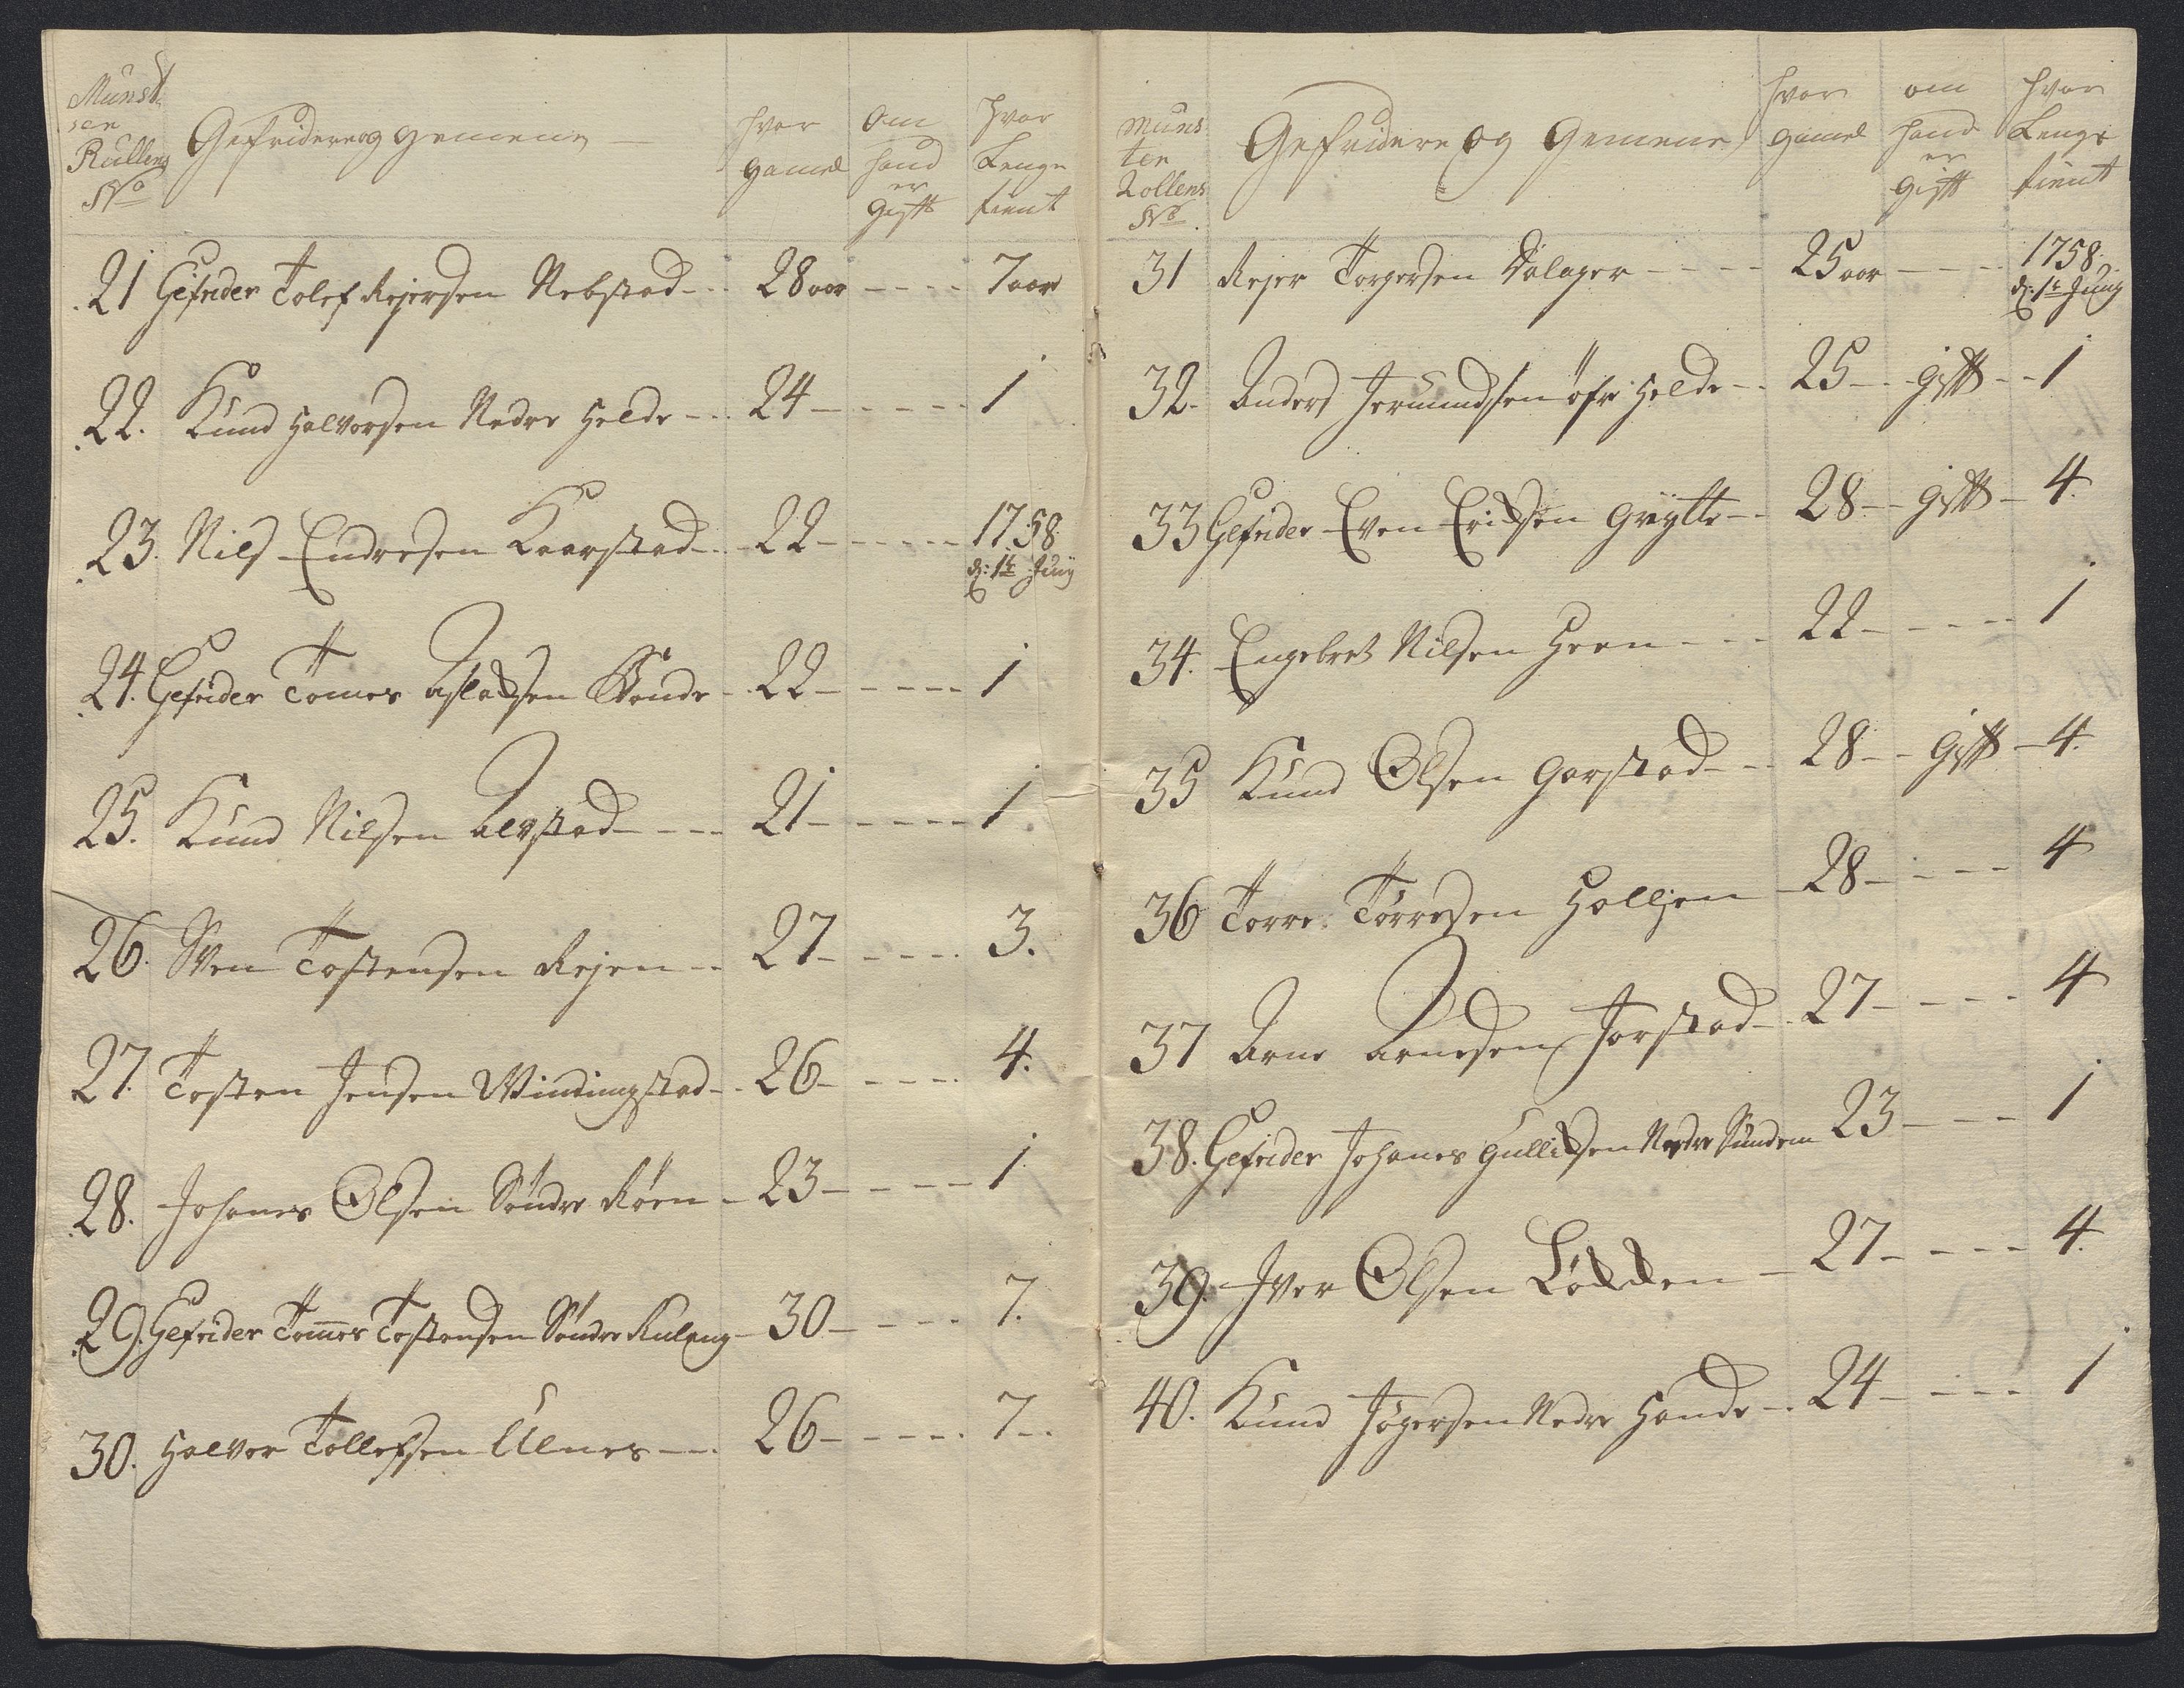 Munst
ser
Rullens
No
Gefridere og gemene
hvor
gamel
om
hand
er
gift
hvor
Lenge
tient
21 Gefrider Tolef Rejersen Nebstad --- 28 aar ---- 7 aar
22. Knud Halvorsen Nedre Helde --- 24 ----- 1
23. Nils Endresen Kaarstad --- 22 ----- 1758.
d: 1te Juny
24. Gefrider Tomes Aslaksen -- 22 ----- 1
25. Knud Nilsen Alfstad ---- 21 ----- 1.
26. Sven Tostensen Rejen -- 27 ----- 3.
27. Tosten Jensen Windingstad -- 26 ----- 4.
28. Johanes Olsen Søndre Røen - 23 ----- 1.
29. Gefrider Tomes Tostensen Søndre - 30 ----- 7.
30. Halvor Tollefsen Ulnes --- 26 ----- 7 --
Muns
ter
Rollens
No.
Gefridere og Gemene
hvor
gamel
om
hand
er
gift
hvor
Lenge
tient
31 Rejer Torgersen Dalager ---- 25 aar ---- 1758.
d: 1te Juny
32. Anders Jermundsen øfre Helde -- 25 -- gift -- 1
33 Gefrider Even Eriksen Grytte -- 28 -- gift - 4.
34. Engebret Nilsen Heen ---- 22 ----- 1
35 Knud Olsen Garstad --- 28 -- gift - 4.
36 Torre Törresen Hallien - 28 ----- 4
37 Arne Arnesen Jorstad -- 27 ---- 4
38. Gefrider Johanes Gulliksen Nedre Sundem 23 ---- 1
39. Iver Olsen Løkken - 27 ---- 4.
40. Knud Jögersen Nedre Hande -- 24 ---- 1